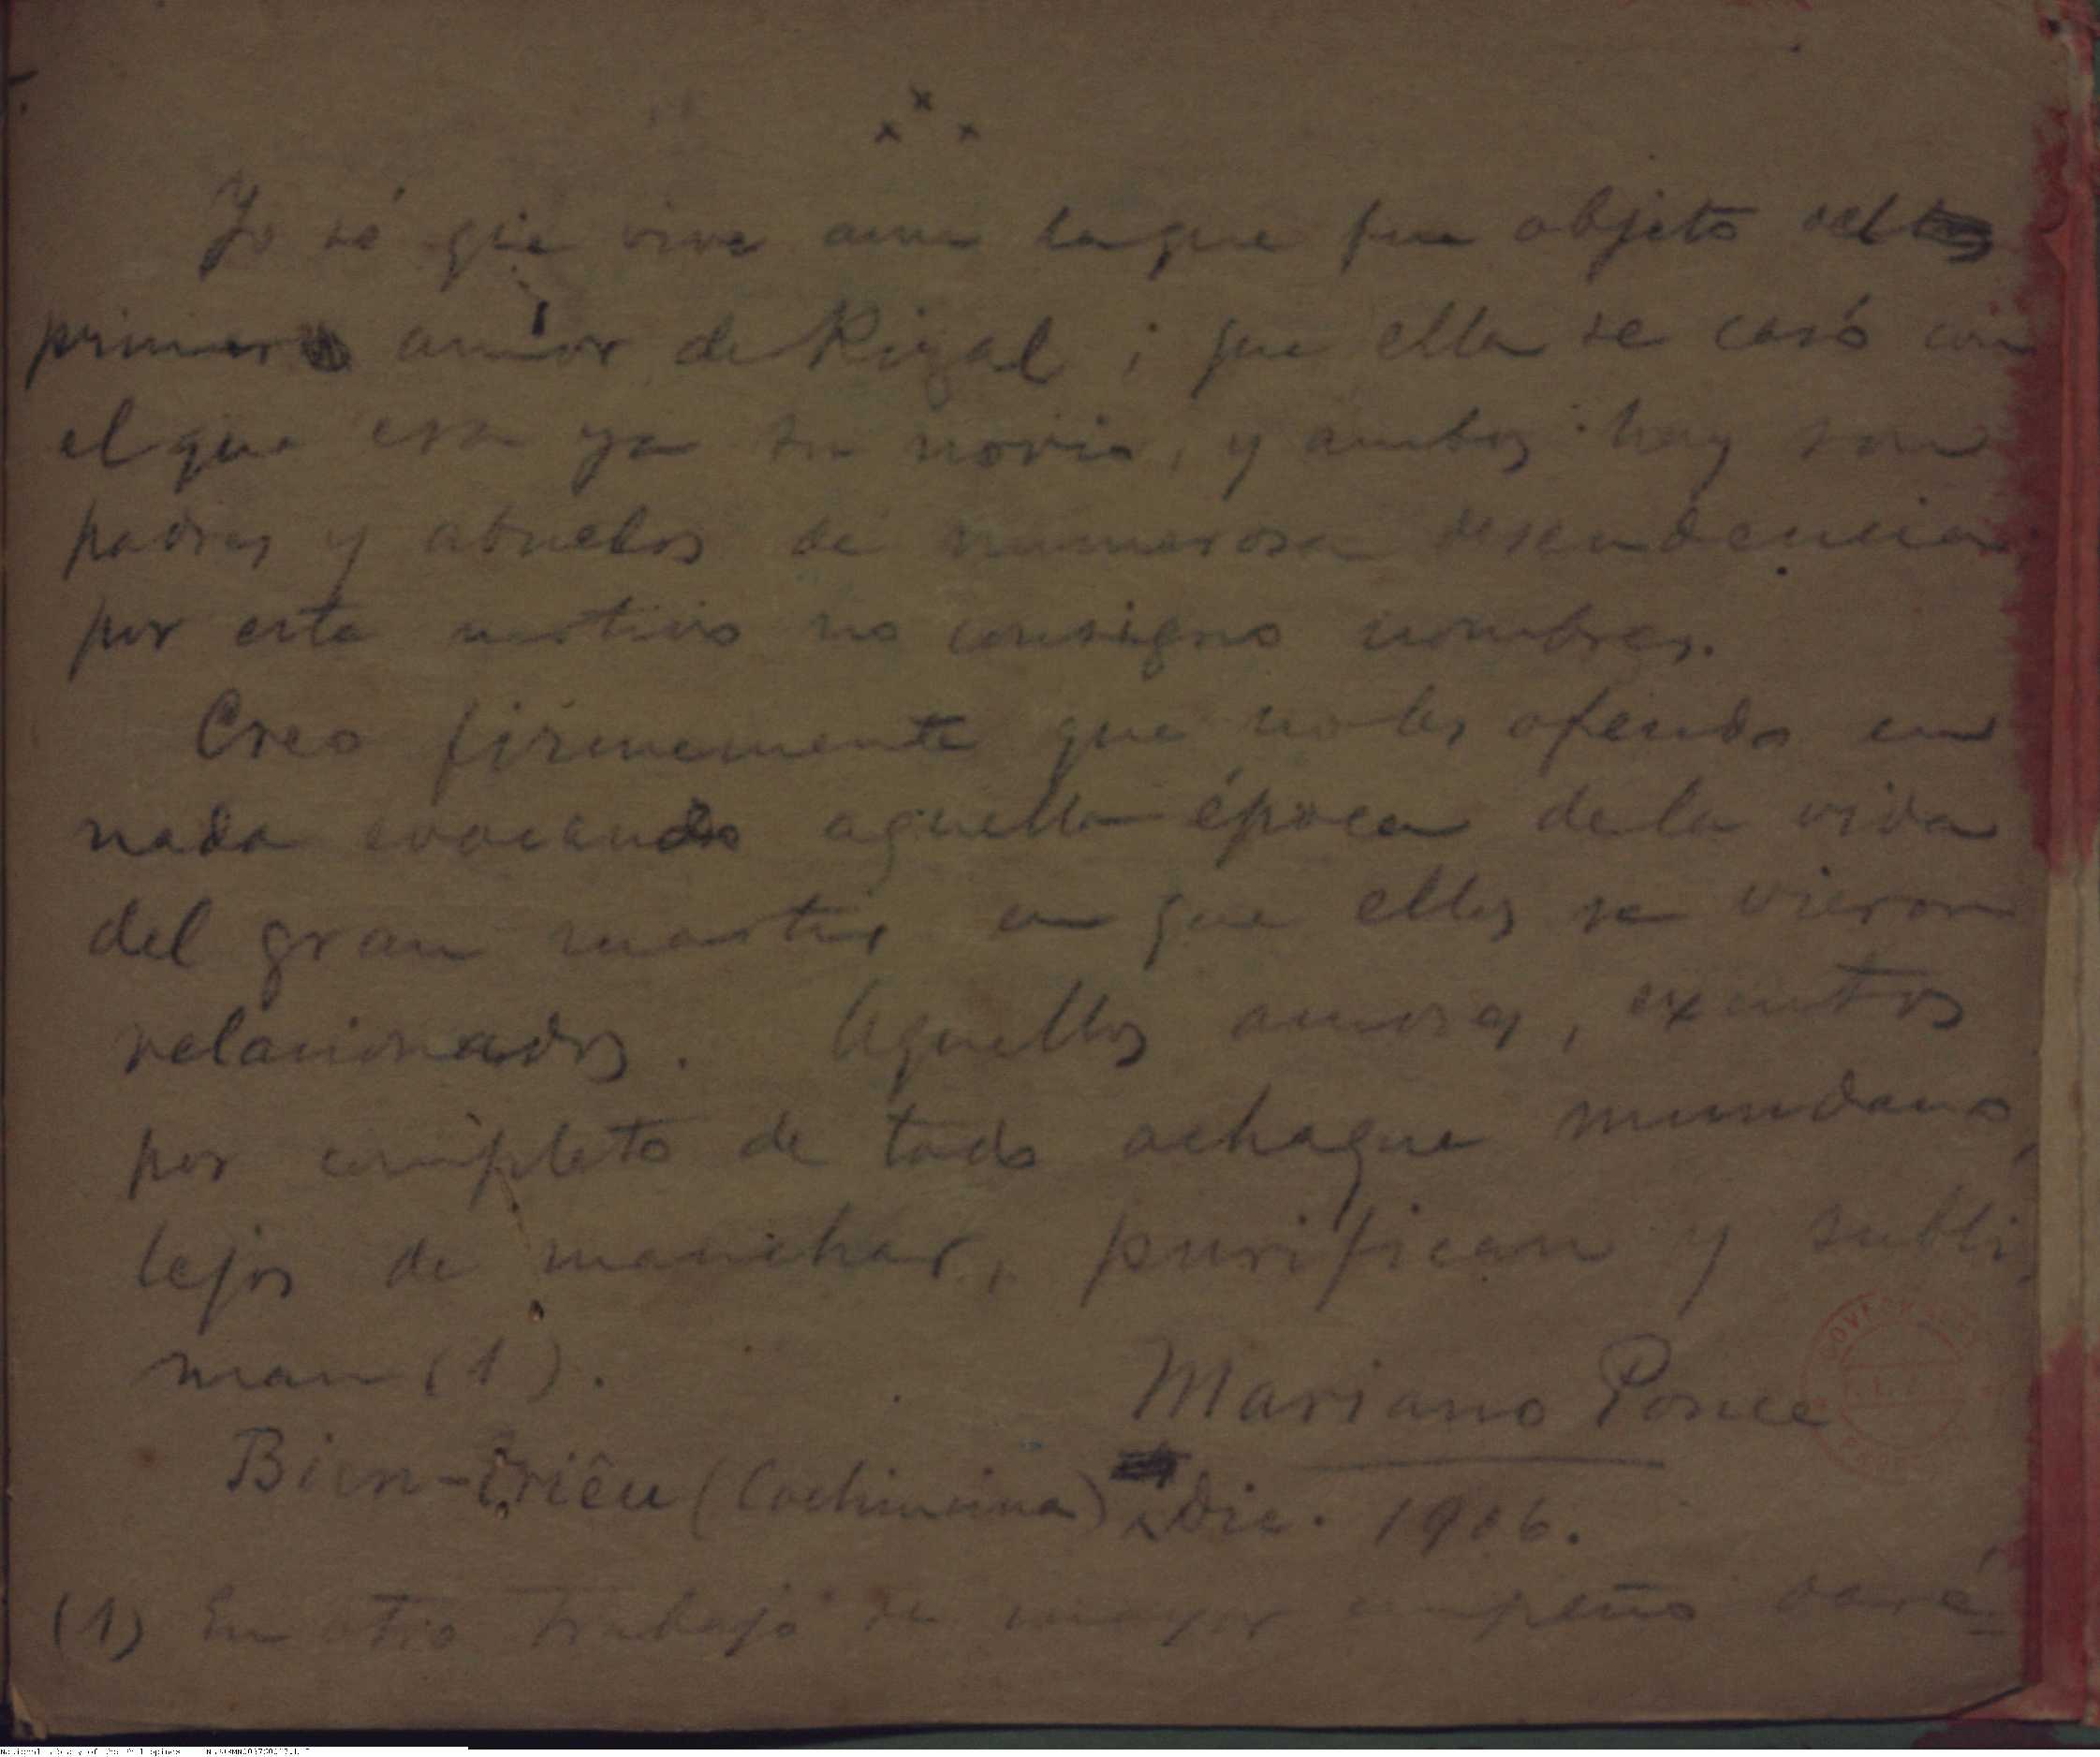 x
x x
Yo sé que vive aun la que fue objeto del
primer amor de Rizal; que ella se casó con
el que era ya su novio, y ambos hoy son
padres y abuelos de numerosa descendencia
por este motivo no consigno nombres.
Creo firmemente que no les ofendo en
nada evocando aquella época de la vida
del gran martir en que ellos se vieron
relacionados. Aquellos amores, exentos
por completo de todo achaque mundano,
lejos de manchar, purifican y subli-
man (1).
Mariano Ponce
Bien-Triêu (Cochinchina) Dic. 1906.
(1) En otro trabajo de mayor empeño daré
National Library of the Philippines